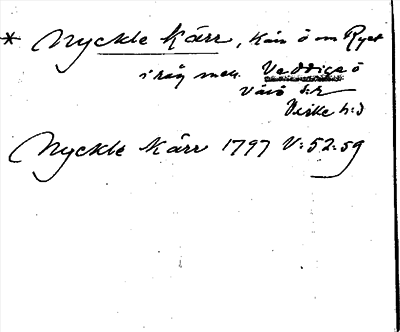 * Nyckle kärr, Kärr ö om Ryet
i råg mell. Veddige ö
Värö s:r
Viske h:d
Nyckle kärr 1797 V:52:59